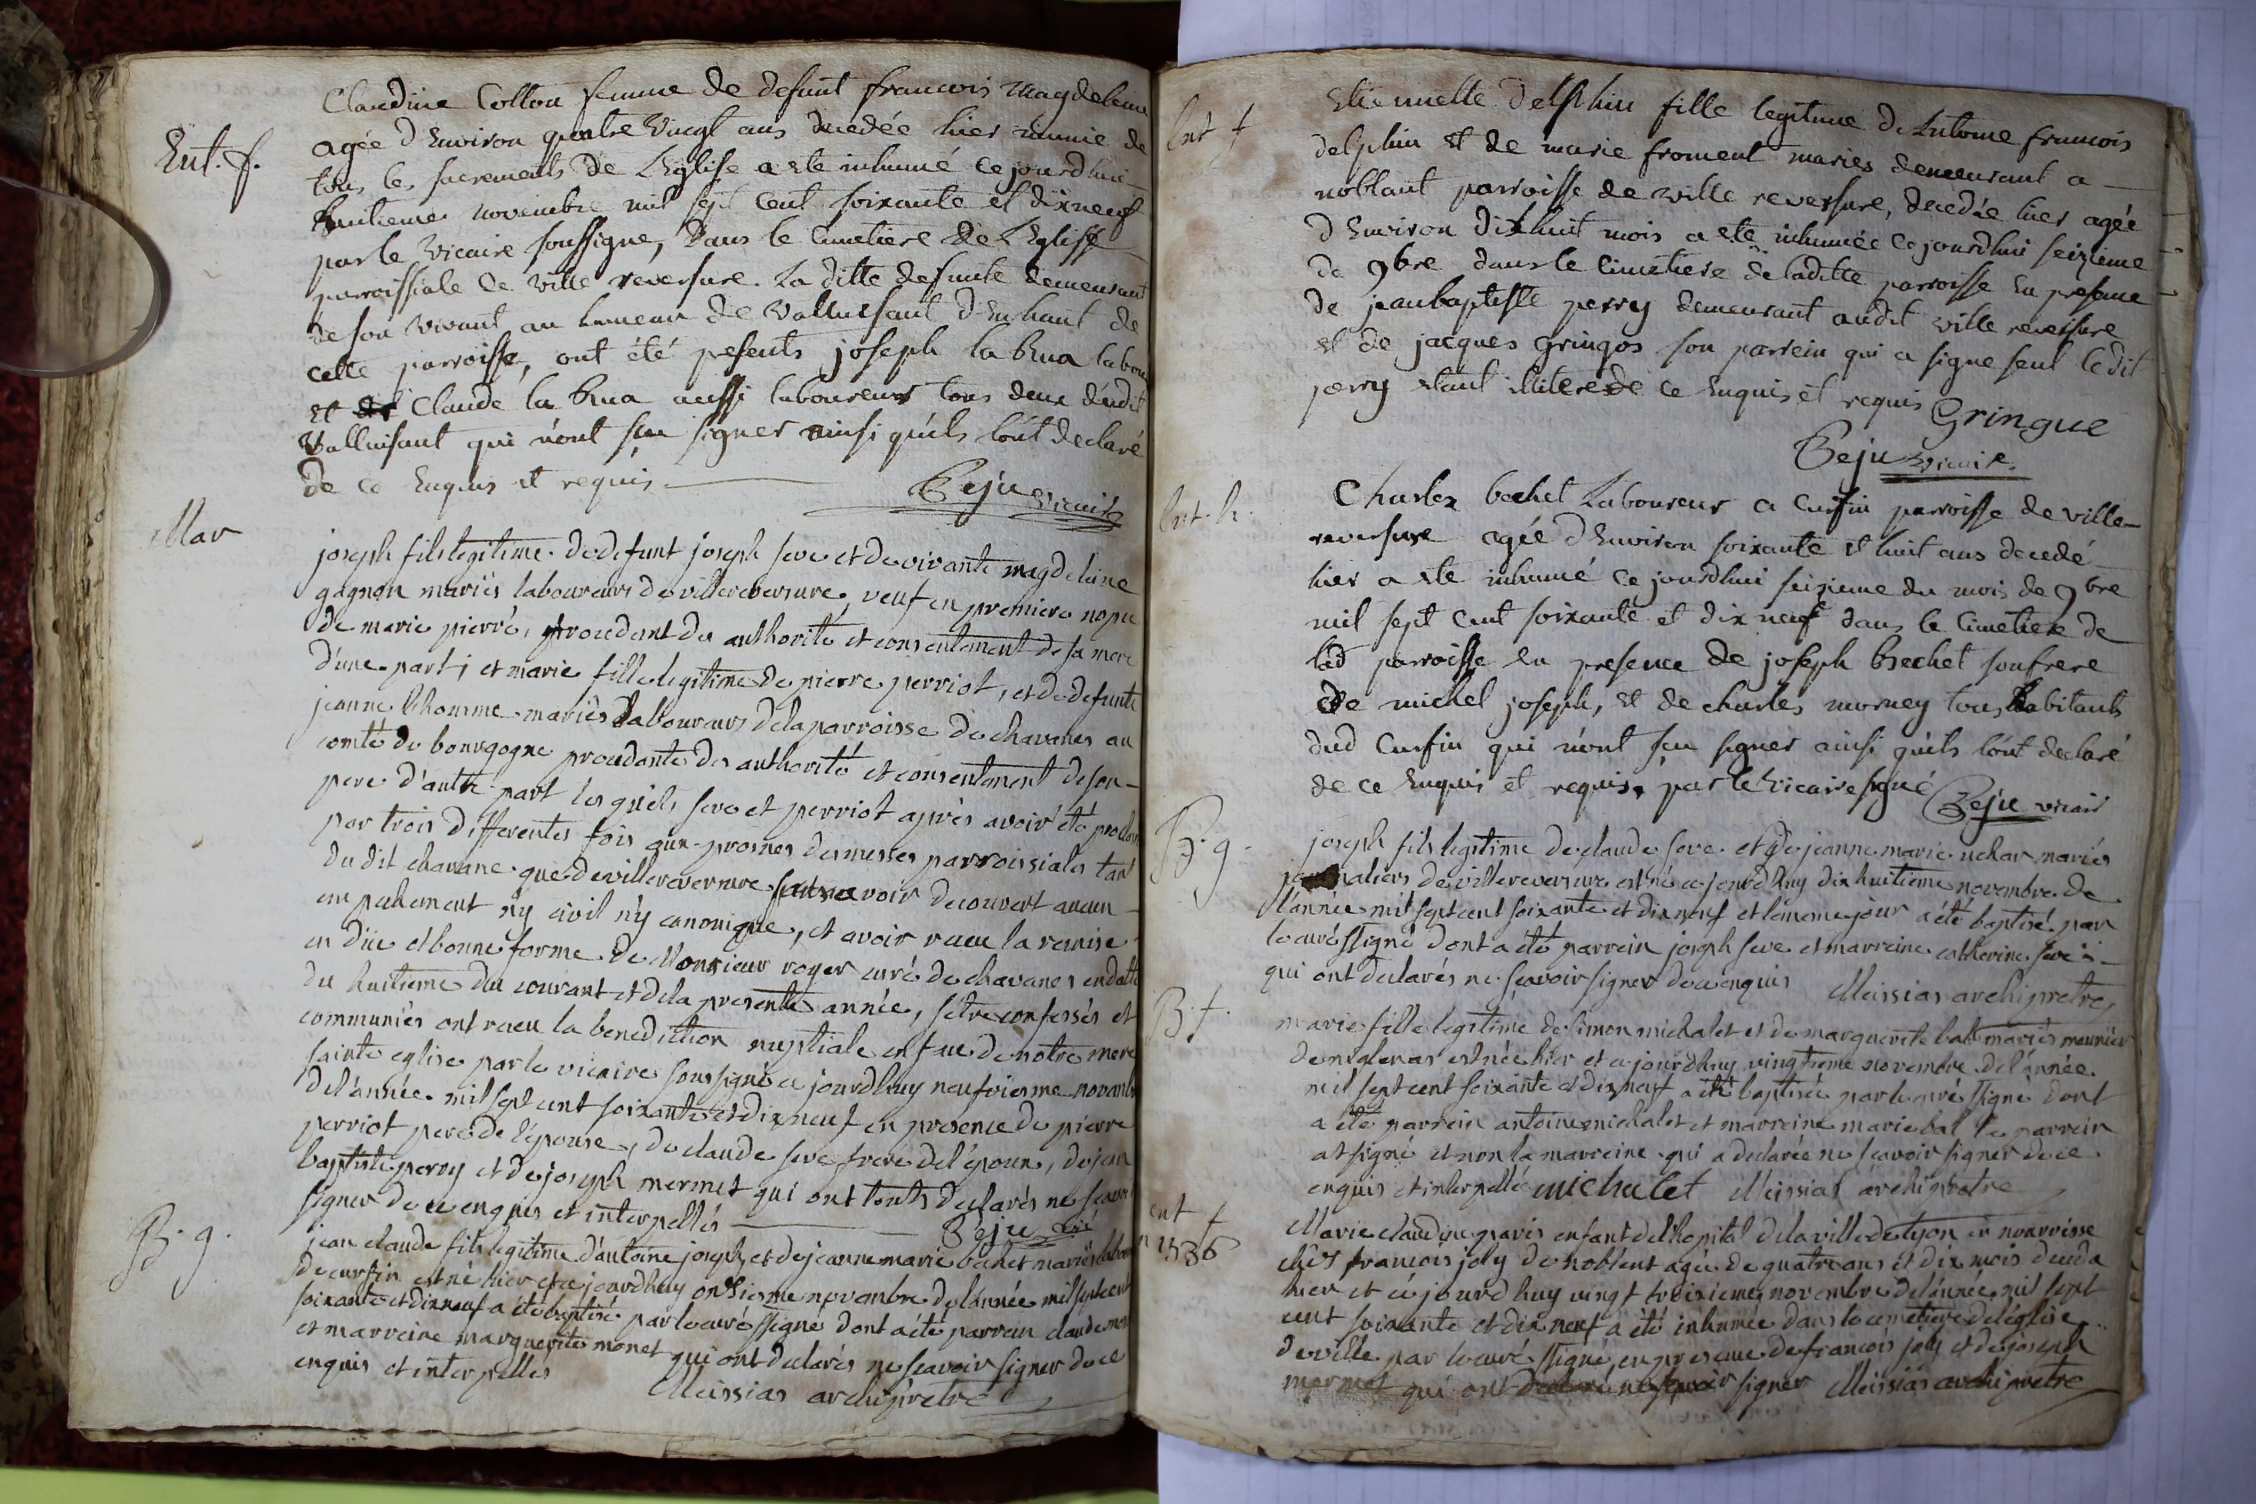 Ent. f.
Claudine Collon femme de defunt francois Magdeleine
agée d Environ quatre Vingt ans decedée hier munie de
tous les sacrements de L'Eglise a ete inhumé ce jourdhui
huitieme novembre mil sept Cent soixante et dixneuf
par le Vicaire soussigne, dans le Cimetiere de L'Eglise
parroissiale de Ville reversure. La ditte defunte demeurant
de son vivant au hameau de Valluisant d'En haut de
cette parroisse, ont été presents joseph la Rua labour
et Claude la Rua aussi laboureur tous deux dudit
Valluisant qui n'ont seu signer ainsi quils l'ont declaré
de ce Enquis et requis
Beju vicaire
Mar
joseph fils legitime de defunt joseph seve et de vivante magdeleine
gagnon mariés laboureurs de villereversure, veuf en premiere nopce
de marie pierre, procedant de authorité et consentement de sa mere
d'une part; et marie fille legitime de pierre perriot, et de defunte
jeanne lhomme mariés Laboureurs de la parroisse de chavanes au
comté de bourgogne procedante de authorité et consentement de son
pere d'autre part les quels seve et perriot après avoir été proclam
par trois differentes fois aux prosnes des messes parroissiales tant
du dit chavane que de villereversure sans avoir decouvert aucun
empechement ny civil ny canonique, et avoir receu la remise
en düe et bonne forme de Monsieur roger curé de chavanes en datte
du huitieme du courant et de la presente année, s'etre confessés et
communiés ont receu la benediction nuptiale en face de notre mere
sainte eglise par le vicaire soussigné ce jourdhuy neufviesme novembre
de l'année mil sept cent soixante et dix neuf en presence de pierre
perriot pere de l'épouse, de claude seve frere de l'époux, de jean
baptiste perry et de joseph mermet qui ont touts declarés ne scavoir
signer de ce enquis et interpellés
Beju vic
B. g.
jean claude fils legitime d'antoine joseph et de jeanne marie bechet mariés labour
de curfin est né hier et ce jourdhuy onzieme novembre de l'année mil sept cent
soixante et dixneuf a été baptisé par le curé ssigné dont a été parrein claude
et marreine marguerite monet qui ont declarés ne scavoir signer de ce
enquis et interpellés Meissias archipretre
Ent f
Etiennette Delphin fille legitime de Antoine francois
delphin et de marie froment mariés demeurant a
noblant parroisse de ville reversure, decedée hier agée
d Environ dix huit mois a ete inhumée ce jourdhui seizieme
de 9bre dans le Cimetiere de ladite parroisse en presence
de jeanbaptiste perry demeurant audit ville reversure
et de jacques gringos son parrein qui a signe seul ledit
perry etant illitere de ce Enquis et requis Gringue
Beju vicaire.
Ent. h.
Charles bechet Laboureur a Curfin parroisse de ville
reversure agée d Environ soixante et huit ans decedé
hier a ete inhumé ce jourdhui seizieme du mois de 9bre
mil sept cent soixante et dix neuf dans le Cimetiere de
lad parroisse en presence de joseph Bechet son frere
de michel joseph, et de charles morney tous habitants
dud Curfin qui n'ont seu signer ainsi quils l'ont declaré
de ce Enquis et requis, par le Vicaire signé Beju vicair
B. g.
joseph fils legitime de claude seve et de jeanne marie uchar mariés
journaliers de villereversure est né ce jourdhuy dix huitieme novembre de
l'année mil sept cent soixante et dix neuf et le meme jour a été baptisé par
le curé ssigné dont a été parrein joseph seve et marreine catherine seve
qui ont declarés ne scavoir signer de ce enquis Meissias archipretre,
B. f.
marie fille legitime de Simon michalet et de marguerite bal mariés meunier
de est née hier et ce jourdhuy vingtieme novembre de l'année
mil sept cent soixante et dix neuf a été baptisée par le curé ssigné dont
a été parrein antoine michalet et marreine marie bal le parrein
at signé et non la marreine qui a declarée ne scavoir signer de ce
enquis et interpellé michalet Meissias archipretre
ent f
n 1536
Marie claudine paris enfant de l'hopital de la ville de lyon en nourrisse
chés francois joly de noblent agée de quatre ans et dix mois deceda
hier et ce jourdhuy vingt troisieme novembre de l'année mil sept
cent soixante et dix neuf a été inhumée dans le cimetiere de l'église
de ville par le curé ssigné, en presence de francois joly et de joseph
mermet qui ont declaré ne scavoir signer Meissias archipretre